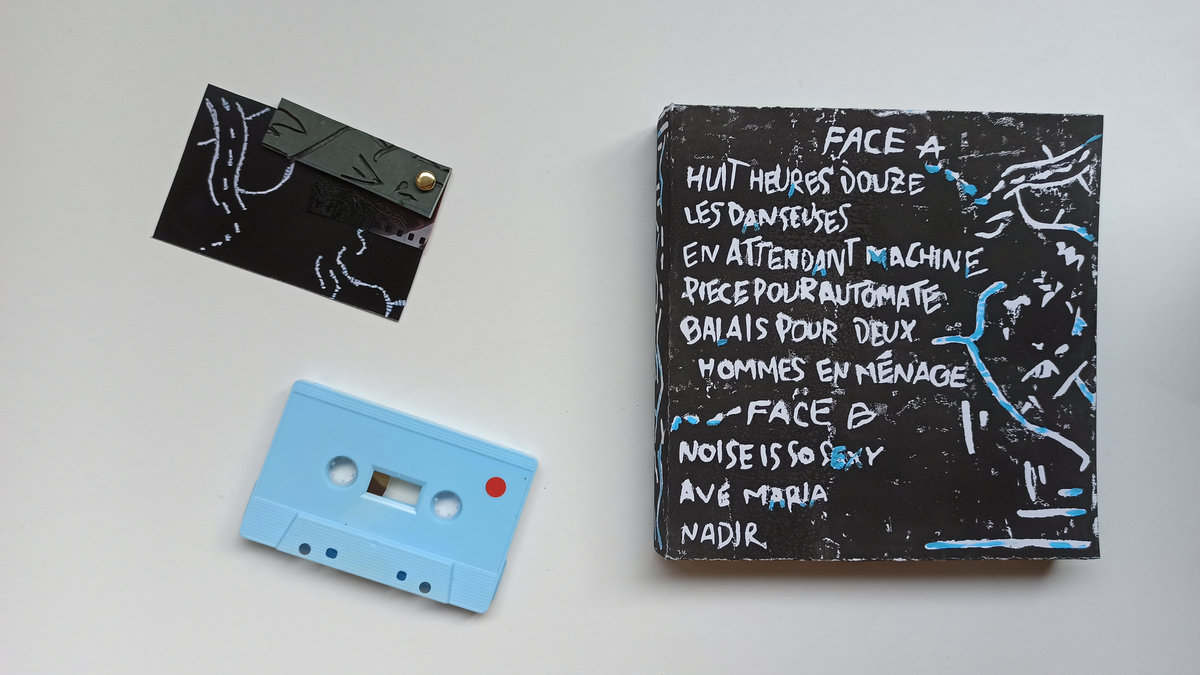 FACE A
HUIT HEURES DOUZE
LES DANSEUSES
EN ATTENDANT MACHINE
PIECE POUR AUTOMATE
BALAIS POUR DEUX
HOMMES EN MÉNAGE
FACE B
NOISE IS SO SEXY
AVÉ MARIA
NADIR